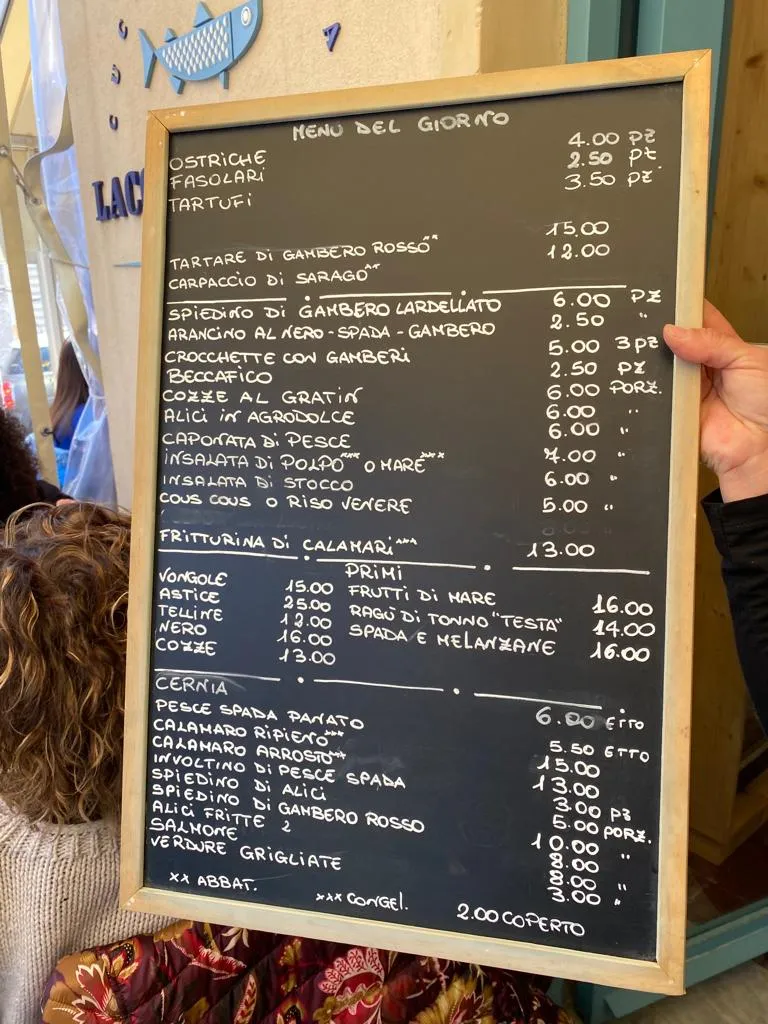 MENU DEL GIORNO
OSTRICHE 4.00 PZ
FASOLARI 2.50 PZ.
TARTUFI 3.50 PZ
TARTARE DI GAMBERO ROSSO** 15.00
CARPACCIO DI SARAGO** 12.00
SPIEDINO DI GAMBERO LARDELLATO 6.00 PZ
ARANCINO AL NERO - SPADA - GAMBERO 2.50 "
CROCCHETTE CON GAMBERI 5.00 3PZ
BECCAFICO 2.50 PZ
COZZE AL GRATIN 6.00 PORZ.
ALICI IN AGRODOLCE 6.00 "
CAPONATA DI PESCE 6.00 "
INSALATA DI POLPO*** O MARE*** 7.00 "
INSALATA DI STOCCO 6.00 "
COUS COUS O RISO VENERE 5.00 "
FRITTURINA DI CALAMARI*** 13.00
PRIMI
VONGOLE 15.00 FRUTTI DI MARE 16.00
ASTICE 25.00 RAGÙ DI TONNO "TESTA" 14.00
TELLINE 12.00 SPADA E MELANZANE 16.00
NERO 16.00
COZZE 13.00
CERNIA 6.00 ETTO
PESCE SPADA PANATO 5.50 ETTO
CALAMARO RIPIENO*** 15.00
CALAMARO ARROSTO*** 13.00
INVOLTINO DI PESCE SPADA 3.00 PZ
SPIEDINO DI ALICI 5.00 PORZ.
SPIEDINO DI GAMBERO ROSSO 10.00 "
ALICI FRITTE 2 8.00
SALMONE 8.00 "
VERDURE GRIGLIATE 3.00 "
** ABBAT. *** CONGEL. 2.00 COPERTO